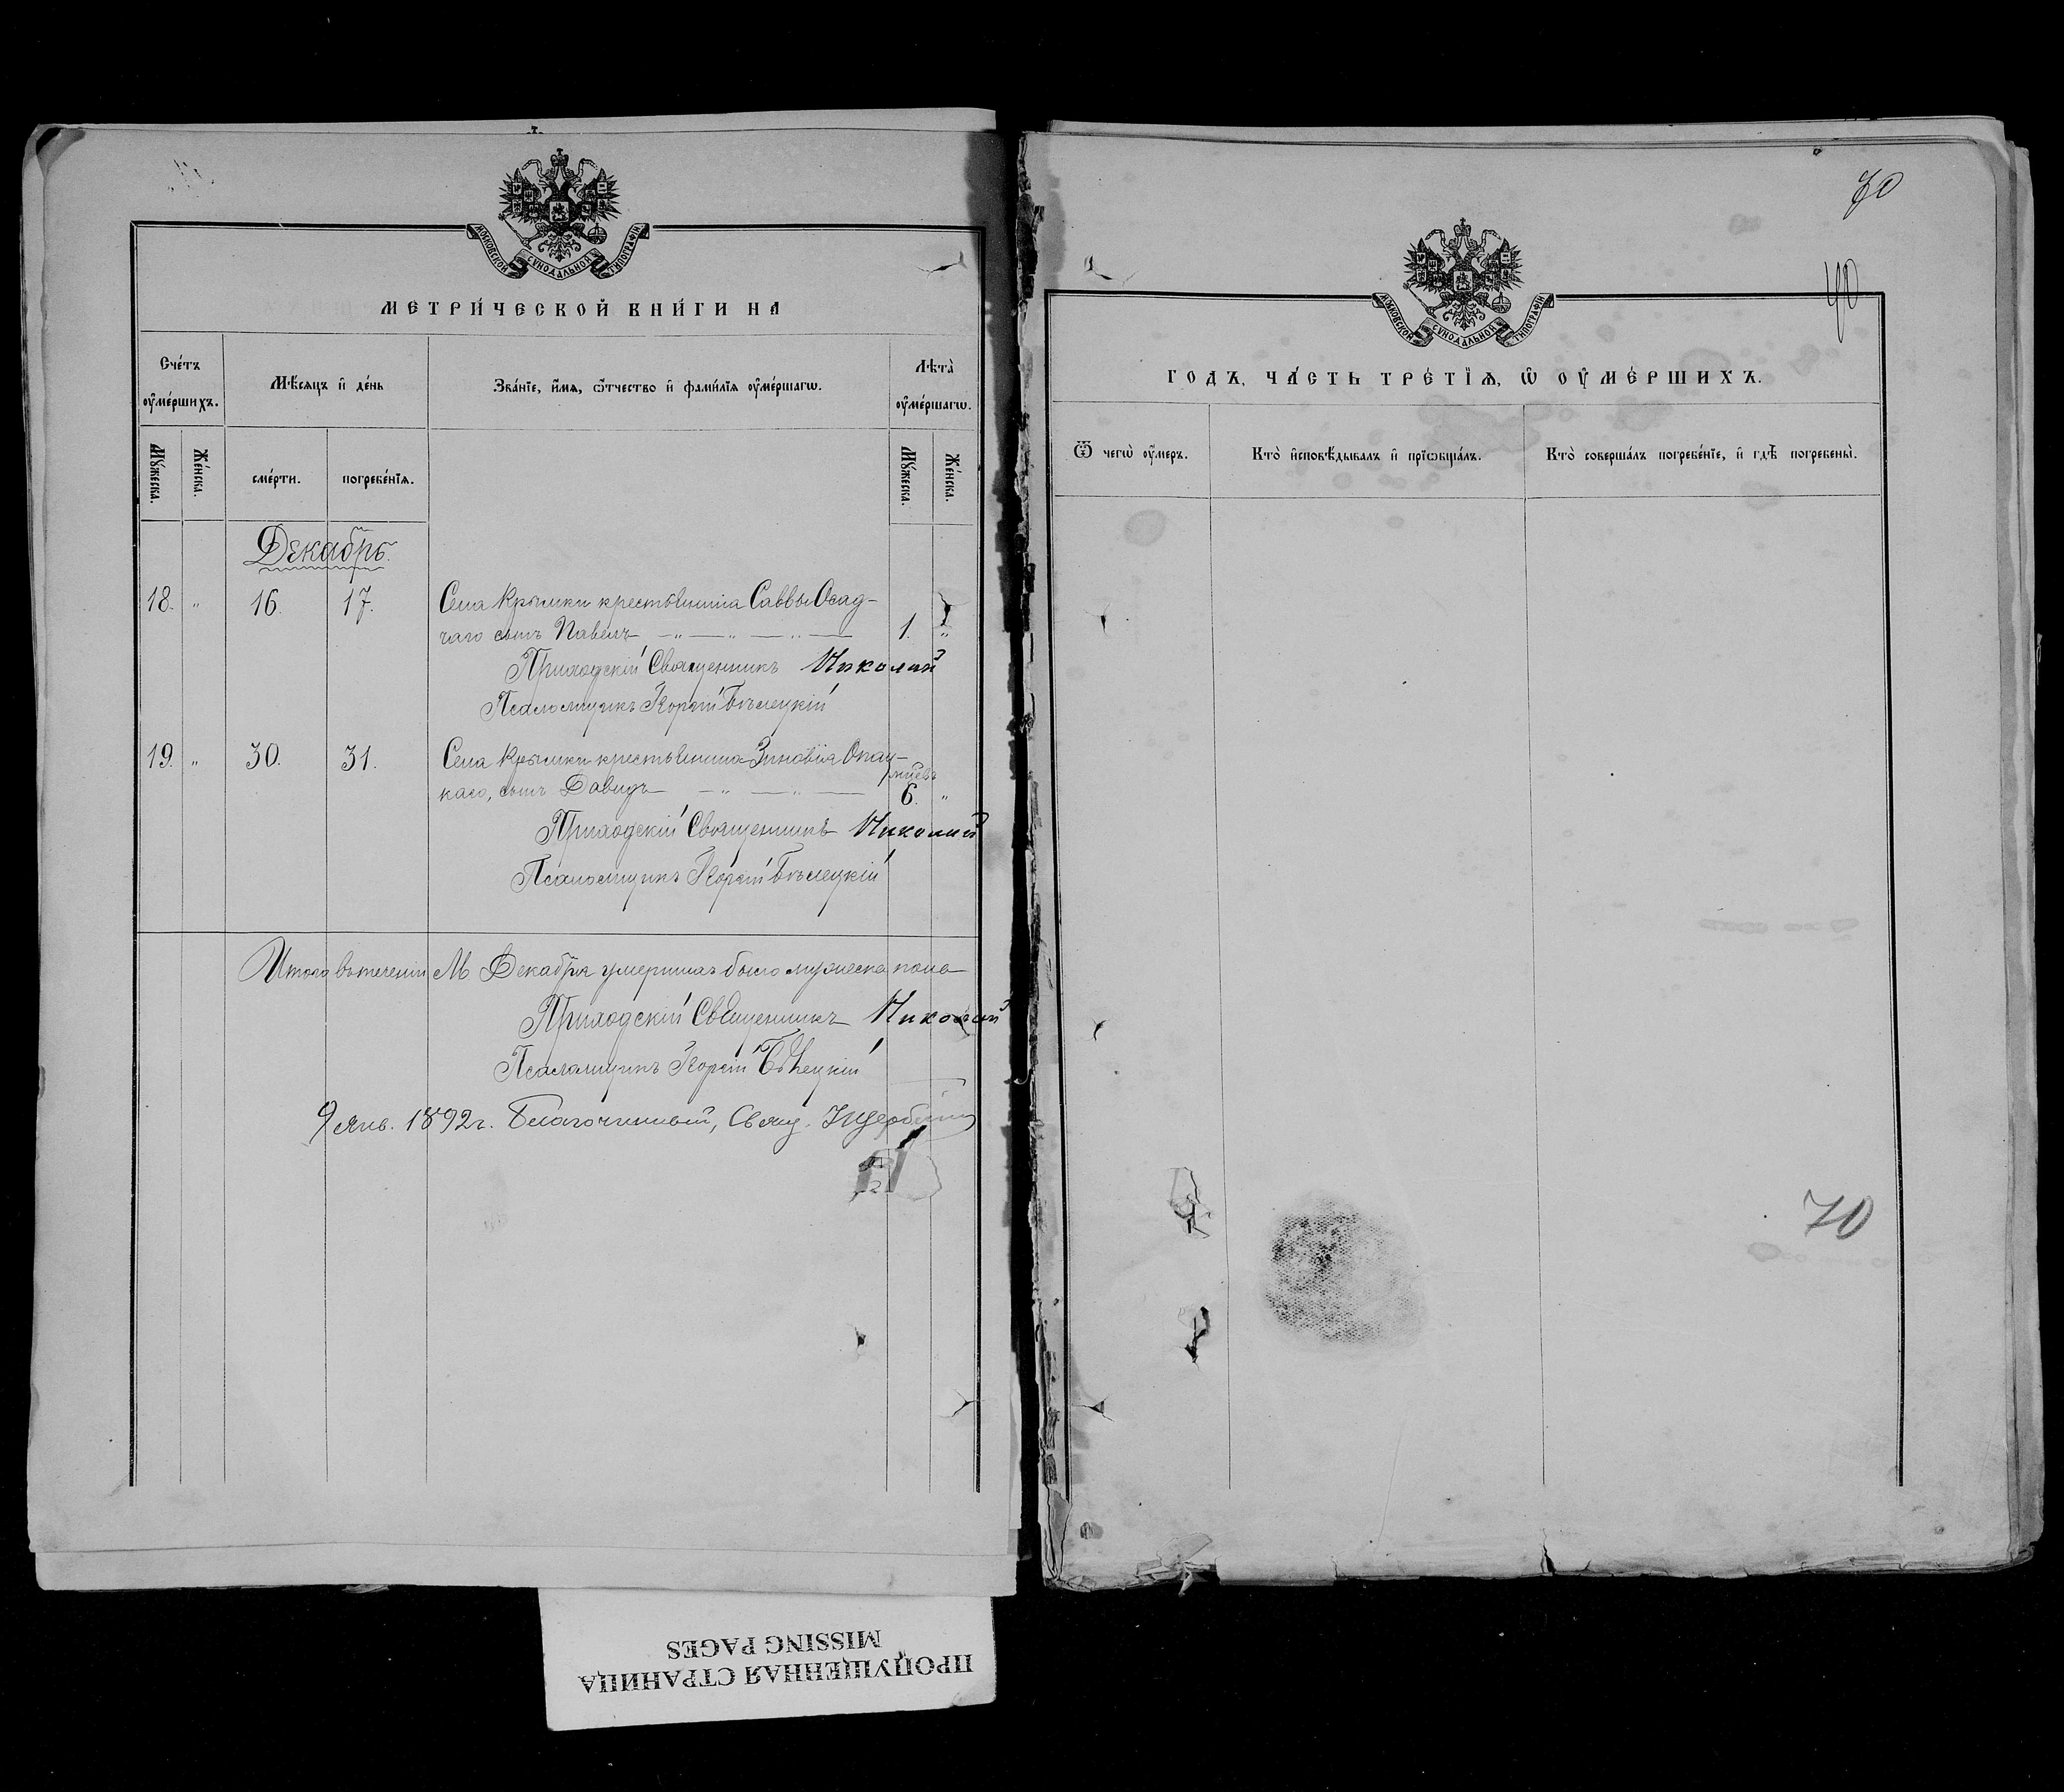 МОСКОВСКОЙ СУНОДАЛЬНОЙ ТИПОГРАФІИ
МЕТРИ́ЧЕСКОЙ КНИ́ГИ НА
Сче́тъ оу҆ме́ршихъ.
Мѣ́сяцъ и҆ де́нь
Зва́нїе, и҆́мя, ѻ҆́тчество и҆ фами́лїя оу҆ме́ршагѡ.
Лѣта̀ оу҆ме́ршагѡ.
Му́жеска.
Же́нска.
сме́рти.
погребе́нїя.
Му́жеска.
Же́нска.
Декабрь.
18. " 16. 17. Села Крымки крестьянина Саввы Осад-
чаго сынъ Павелъ 1. "
Приходскій Священникъ Николай
Псаломщикъ Бѣлецкій
19. " 30. 31. Села Крымки крестьянина Зиновія
мѣсяцевъ
каго, сынъ Давидъ 6. "
Приходскій Священникъ Николай
Псаломщикъ Бѣлецкій
Итого въ теченіи М Декабря умершихъ было мужеска пола
Приходскій Священникъ Николай
Псаломщикъ Бѣлецкій
9 Янв. 1892 г. Благочинный, Свящ.
70
МОСКОВСКОЙ СУНОДАЛЬНОЙ ТИПОГРАФІИ
ГОДЪ, ЧА́СТЬ ТРЕ́ТЇЯ, Ѡ҆ ОУ҆МЕ́РШИХЪ.
Ѿ чегѡ̀ оу҆́меръ.
Кто̀ и҆сповѣ́дывалъ и҆ прїѡбща́лъ.
Кто̀ соверша́лъ погребе́нїе, и҆ гдѣ̀ погребены̀.
70
ПРОПУЩЕННАЯ СТРАНИЦА
MISSING PAGES